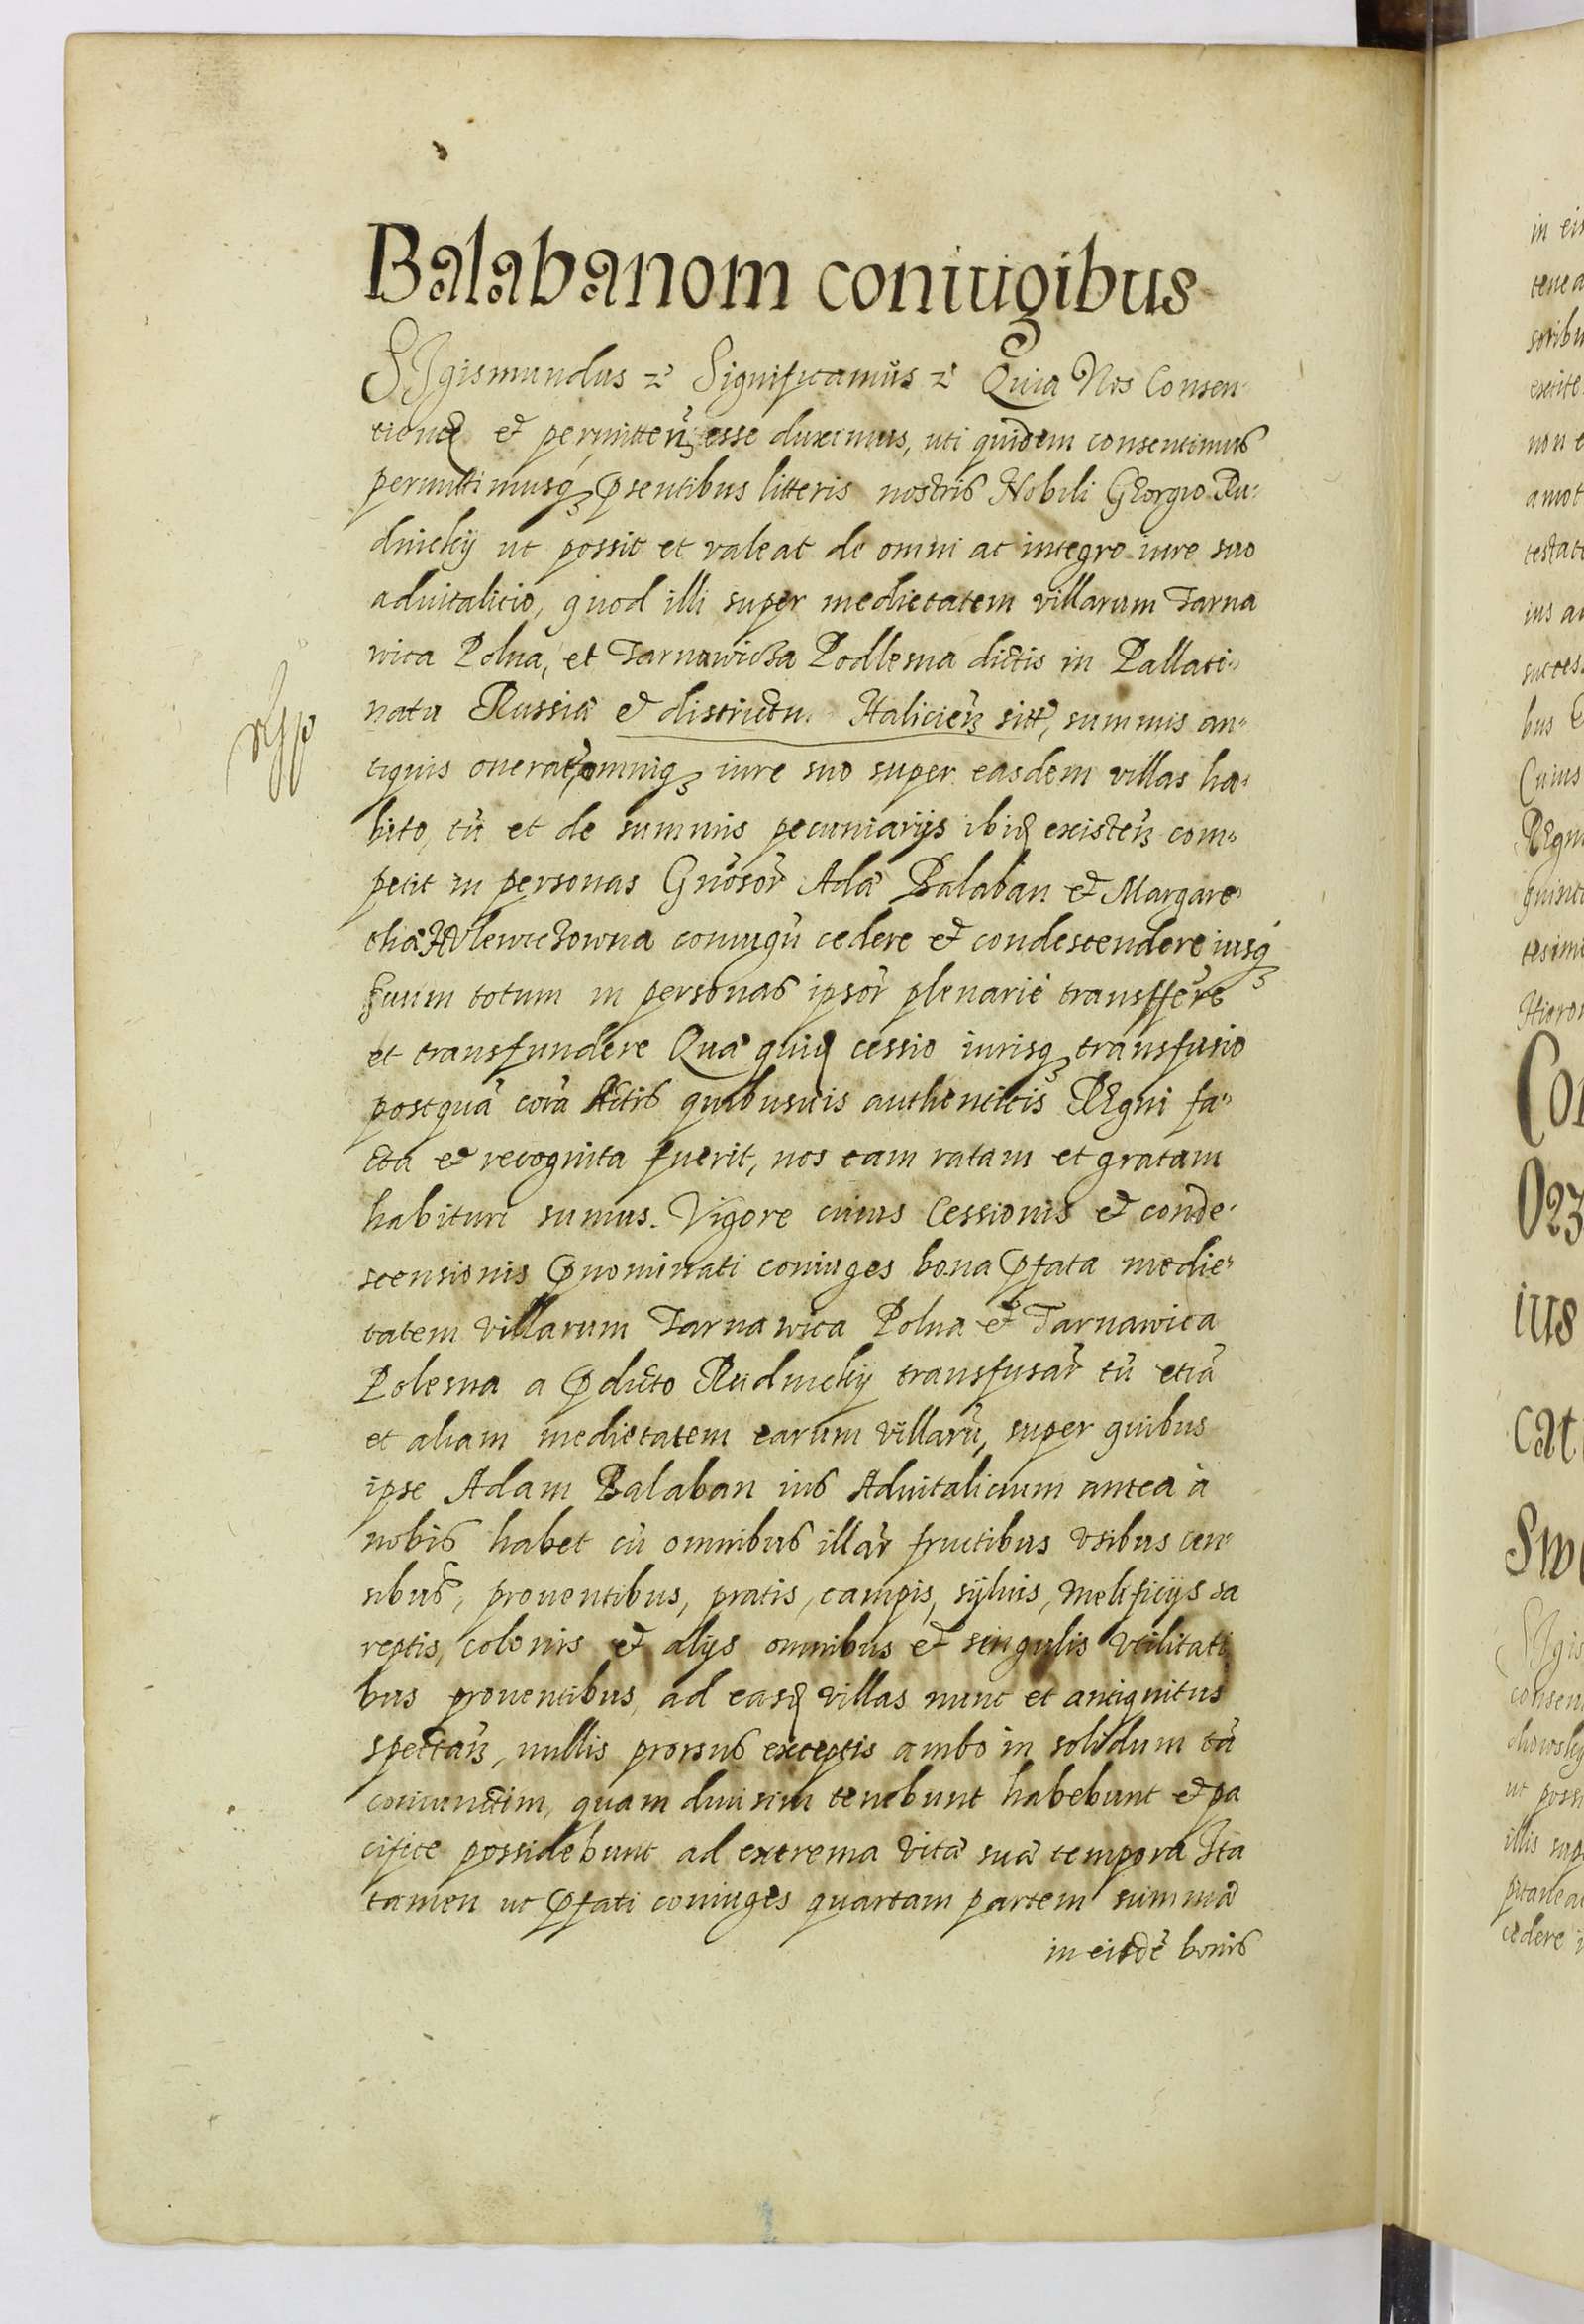 Balabanom coniugibus
SIgismundus &c Significamus &c Quia Nos Consen-
tiend et permitten esse duximus, uti quidem consentimus
permittimusq pręsentibus litteris nostris Nobili GEorgio Ru-
dnickÿ ut possit et valeat de omni ac integro iure suo
aduitalicio, quod illi super medietatem villarum Tarna
wica Polna, et Tarnawicza Podlesna dictis in Pallati-
natu Russiæ et districtu Haliciens sitt, summis an-
tiquis onerat, omniq iure suo super easdem villas ha-
bito, tū et de summis pecuniarijs ibid existens com-
petit in personas Gnosor Adæ Balaban et Margare-
thæ HVlewiczowna coniugū cedere et condescendere iusq
suum totum in personas ipsor plenarié transfferre
et transfundere Quæ quid cessio iurisq transfusio
postquā corā Actis quibusuis authenticis REgni fa-
cta et recognita fuerit, nos eam ratam et gratam
habituri sumus. Vigore cuius Cessionis et conde-
scensionis prnominati coniuges bona prfata medie-
tatem villarum Tarnawica Polna et Tarnawica
Polesna a prdicto Rudnickÿ transfusar tū etiā
et aliam medietatem earum villarū, super quibus
ipse Adam Balaban ius Aduitalicium antea à
nobis habet cū omnibus illar fructibus vsibus cen-
sibus, prouentibus, pratis, campis, sÿluis, melificijs sa
reptis, colonis et alijs omnibus et singulis vtilitati
bus prouentibus, ad easd villas nunc et antiquitus
spectans, nullis prorsus exceptis ambo in solidum tā
coniunctim, quam diuisim tenebunt habebunt et pa
cifice possidebunt ad extrema vitæ suæ tempora Ita
tamen ut prfati coniuges quartam partem summæ
in eisdē bonis